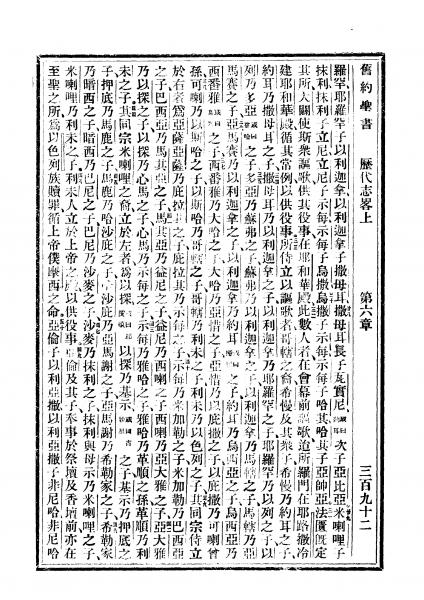 舊約聖書 歷代志畧上 第六章 三百九十二
羅罕耶羅罕子以利迦拿以利迦拿子撒母耳撒母耳長子瓦實尼次子亞比亞米喇哩子
抹利抹利子立尼立尼子示每示每子烏撒烏撒子示每示每子哈其哈其子亞帥亞法匱既定
其所大闢使斯衆謳歌供其役事在耶和華殿此數人者在會幕前謳歌迨所羅門在耶路撒冷
建耶和華殿循其常例以供役事所侍立以謳歌者哥轄之裔希慢及其衆子希慢乃約耳之子
約耳乃撒母耳之子撒母耳乃以利迦拿之子以利迦拿乃耶羅罕之子耶羅罕乃以列之子以
列乃多亞之子多亞乃蘇弗之子蘇弗乃以利迦拿之子以利迦拿乃馬轄之子馬轄乃亞
馬賽之子亞馬賽乃以利迦拿之子以利迦拿乃約耳之子約耳乃烏西亞之子烏西亞乃
西番雅之子西番雅乃大哈之子大哈乃亞惜之子亞惜乃以庇撒之子以庇撒乃可喇曾
孫可喇乃以斯哈之子以斯哈乃哥轄之子哥轄乃利未之子利未乃以色列之子其同宗侍立
於右者爲亞薩亞薩乃庇拉其之子庇拉其乃示每之子示每乃米加勒之子米加勒乃巴西亞
之子巴西亞乃馬其亞之子馬其亞乃益尼之子益尼乃西喇之子西喇乃亞大雅之子亞大雅
乃以探之子以探乃心馬之子心馬乃示每之子示每乃雅哈之子雅哈乃革順之孫革順乃利
未之子其同宗米喇哩之裔立於左者爲以探以探乃基示之子基示乃押底之
子押底乃馬鹿之子馬鹿乃哈沙庇之子哈沙庇乃亞馬謝之子亞馬謝乃希勒家之子希勒家
乃暗西之子暗西乃巴尼之子巴尼乃沙麥之子沙麥乃抹利之子抹利乃母示之子母示乃米喇哩之子
米喇哩乃利未之子利未人立於上帝之殿以供役事亞倫及其子奉事於祭壇及香壇前亦在
至聖之所爲以色列族贖罪循上帝僕摩西之命亞倫子以利亞撒以利亞撒子非尼哈非尼哈